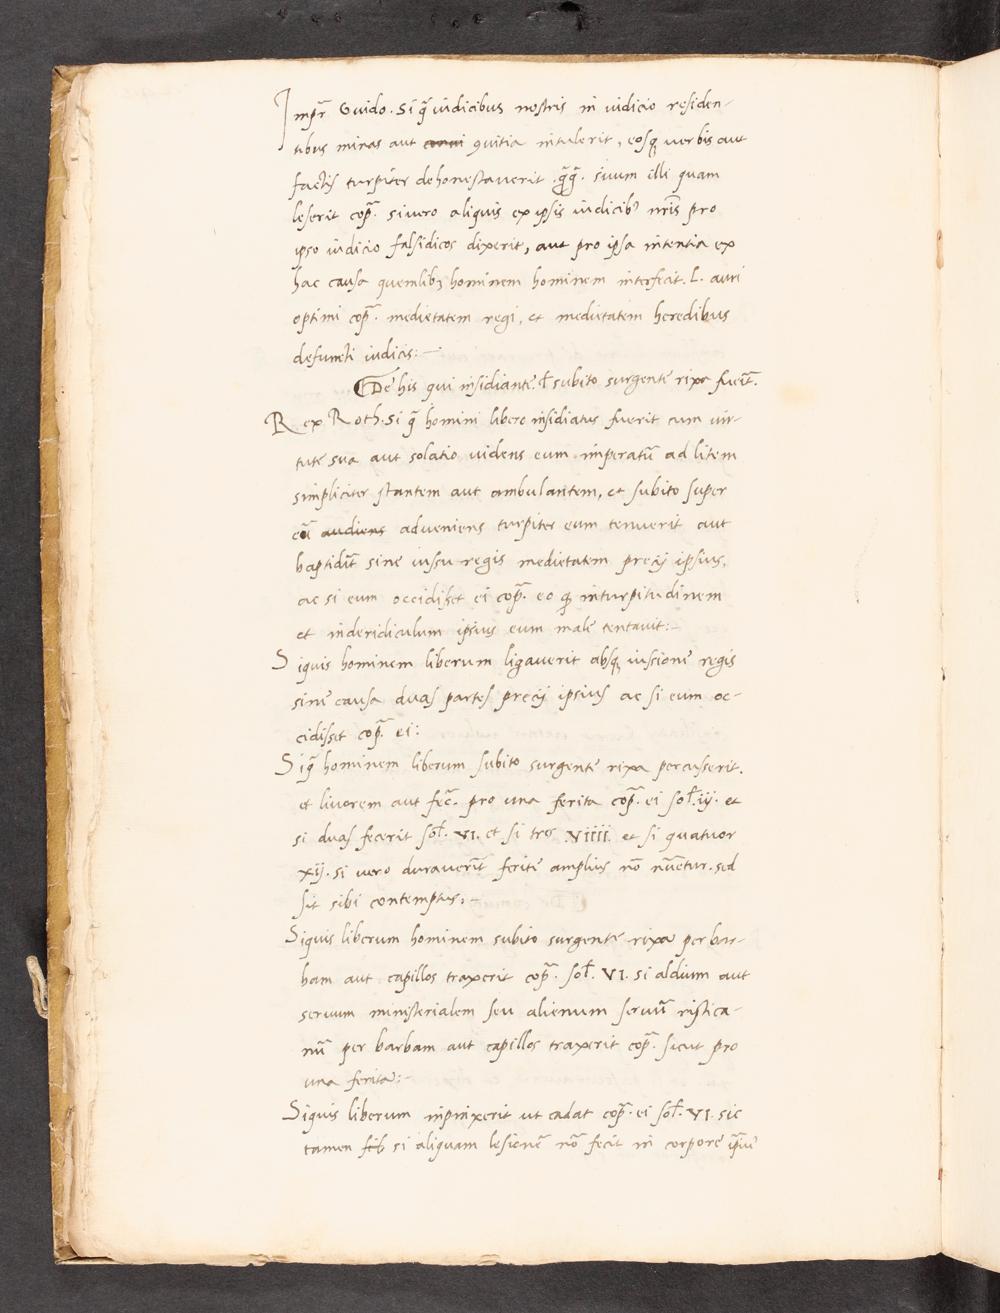 Impr̃ Guido. Si q̃ iudicibus nostris in iudicio residen-
tibus minas aut conui quitia intulerit, eosq; uerbis aut
factis turpiter dehonestauerit .q̃q̃. suum illi quam
leserit cop̃. siuero aliquis ex ipsis iudicib' nr̃is pro
ipso iudicio falsidicos dixerit, aut pro ipsa intentia ex
hac causa quemlibz hominem hominem interfecit. L. auri
optimi cop̃. medietatem regi, et medietatem heredibus
defuncti iudicis:—
De his qui insidiante. ł subito surgente rixa fuer̃t.
Rex Roth. Si q̃ homini libero insidiatus fuerit cum uir-
tute sua aut solatio uidens eum imperatũ ad litem
simpliciter stantem aut ambulantem, et subito super
eũ audiens adueniens turpiter eum tenuerit aut
baptidũt sine iussu regis medietatem precij ipsius,
ac si eum occidisset ei cop̃. eo q; inturpitudinem
et inderidiculum ipsius eum male tentauit:—
Siquis hominem liberum ligauerit absq; iussione regis
sine causa duas partes precij ipsius ac si eum oc-
cidisset cop̃. ei:
Siq̃ hominem liberum subito surgente rixa percusserit.
et liuorem aut fec̃. pro una ferita cop̃. ei soł. iij. et
si duas fecerit soł. VI. et si tres .VIIII. et si quatuor
xij. si uero durauer̃t ferite amplius nõ nũetur. sed
sit sibi contemptus:—
Siquis liberum hominem subito surgente rixa per bar-
bam aut capillos traxerit cop̃. soł. VI. si aldium aut
seruum ministerialem seu alienum seruũ rustica-
nũ per barbam aut capillos traxerit cop̃. sicut pro
una ferita:—
Siquis liberum inpinxerit ut cadat cop̃. ei soł. VI. sic
tamen si aliquam lesionẽ nõ fecit in corpore ip̃ius